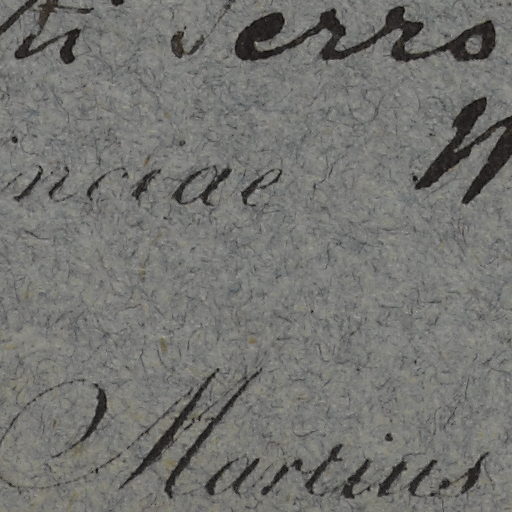 ti Serro
inciae M
Martius